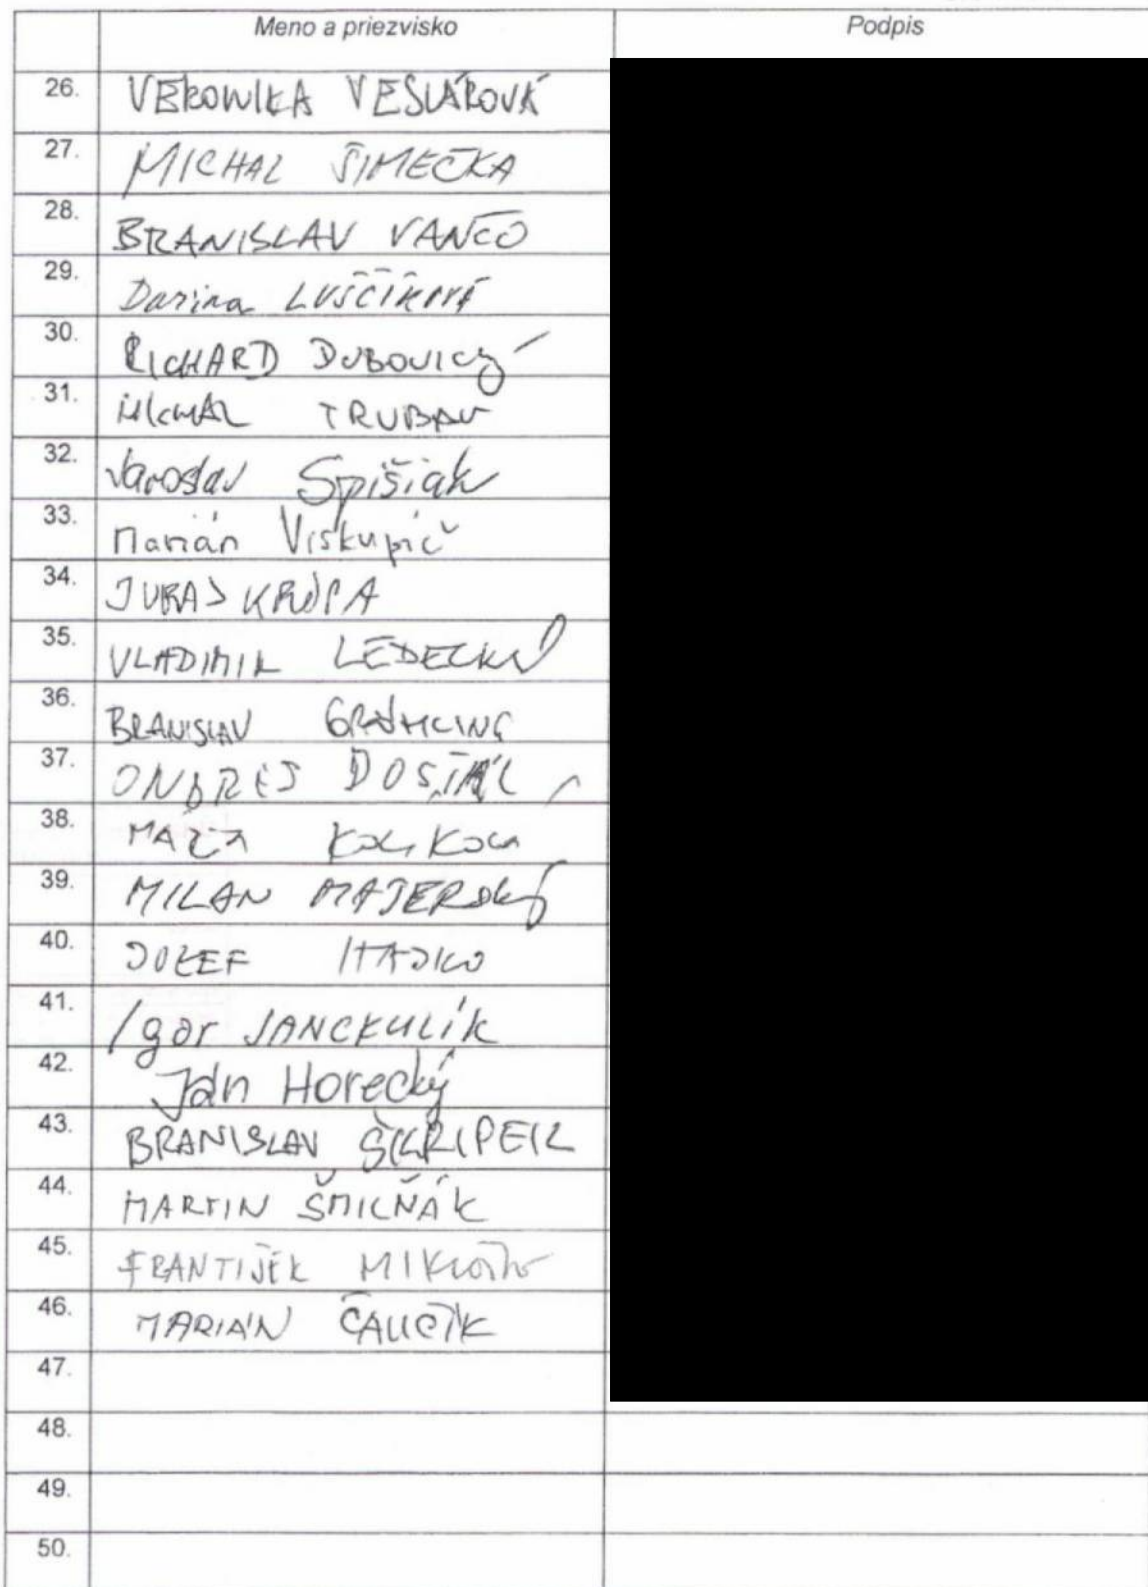 Meno a priezvisko Podpis
26. VERONIKA VESLÁROVÁ
27. MICHAL ŠIMEČKA
28. BRANISLAV VANČO
29. Darina LUŠČÍKOVÁ
30. RICHARD DUBOVICKÝ
31. MICHAL TRUBAN
32. Jaroslav Spišiak
33. Marián Viskupič
34. JURAJ KRÚPA
35. VLADIMIR LEDECKÝ
36. BRANISLAV GRÖHLING
37. ONDREJ DOSTÁL
38. MÁRIA KOLÍKOVÁ
39. MILAN MAJERSKÝ
40. JOZEF HAJKO
41. Igor JANCKULÍK
42. Ján Horecký
43. BRANISLAV ŠKRIPEK
44. MARTIN ŠMILŇÁK
45. FRANTIŠEK MIKLOŠKO
46. MARIÁN ČAUČÍK
47.
48.
49.
50.